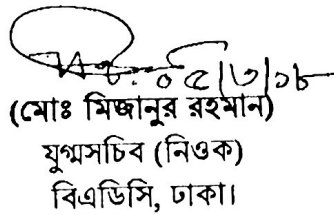 ০৫/৩/১৮
(মোঃ মিজানুর রহমান)
যুগ্মসচিব (নিওক)
বিএডিসি, ঢাকা।